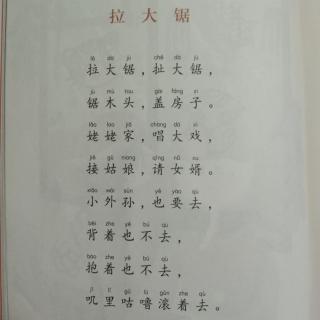 拉大锯
lā dà jù chě dà jù
拉大锯，扯大锯，
jù mù tou gài fáng zi
锯木头，盖房子。
lǎo lao jiā chàng dà xì
姥姥家，唱大戏，
jiē gū niáng qǐng nǚ xu
接姑娘，请女婿。
xiǎo wài sūn yě yào qù
小外孙，也要去，
bēi zhe yě bú qù
背着也不去，
bào zhe yě bú qù
抱着也不去，
jī lǐ gū lū gǔn zhe qù
叽里咕噜滚着去。